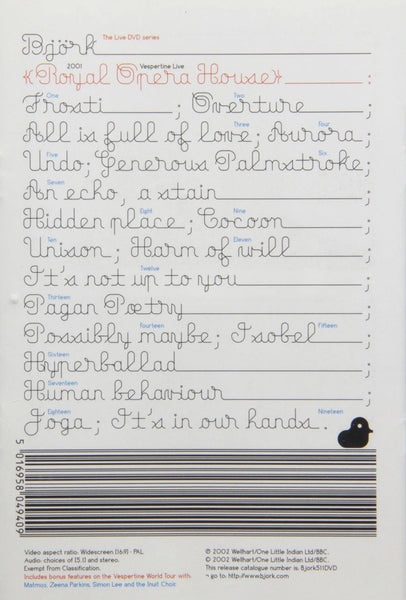 Björk The Live DVD series
2001 Vespertine Live
«Royal Opera House» :
One Two
Frosti ; Overture ;
Three Four
All is full of love; Aurora ;
Five Six
Undo; Generous Palmstroke;
Seven
An echo, a stain ;
Eight Nine
Hidden place ; Cocoon ;
Ten Eleven
Unison ; Harm of will ;
Twelve
It's not up to you ;
Thirteen
Pagan Poetry ;
Fourteen Fifteen
Possibly maybe; Isobel ;
Sixteen
Hyperballad ;
Seventeen
Human behaviour ;
Eighteen Nineteen
Joga; It's in our hands.
5 016958 049409
Video aspect ratio: Widescreen (16:9) - PAL
Audio: choices of (5.1) and stereo.
Exempt from Classification.
Includes bonus features on the Vespertine World Tour with:
Matmos, Zeena Parkins, Simon Lee and the Inuit Choir.
© 2002 Wellhart/One Little Indian Ltd/BBC.
℗ 2002 Wellhart/One Little Indian Ltd/BBC.
This release catalogue number is: Bjork511DVD
¬ go to: http://www.bjork.com